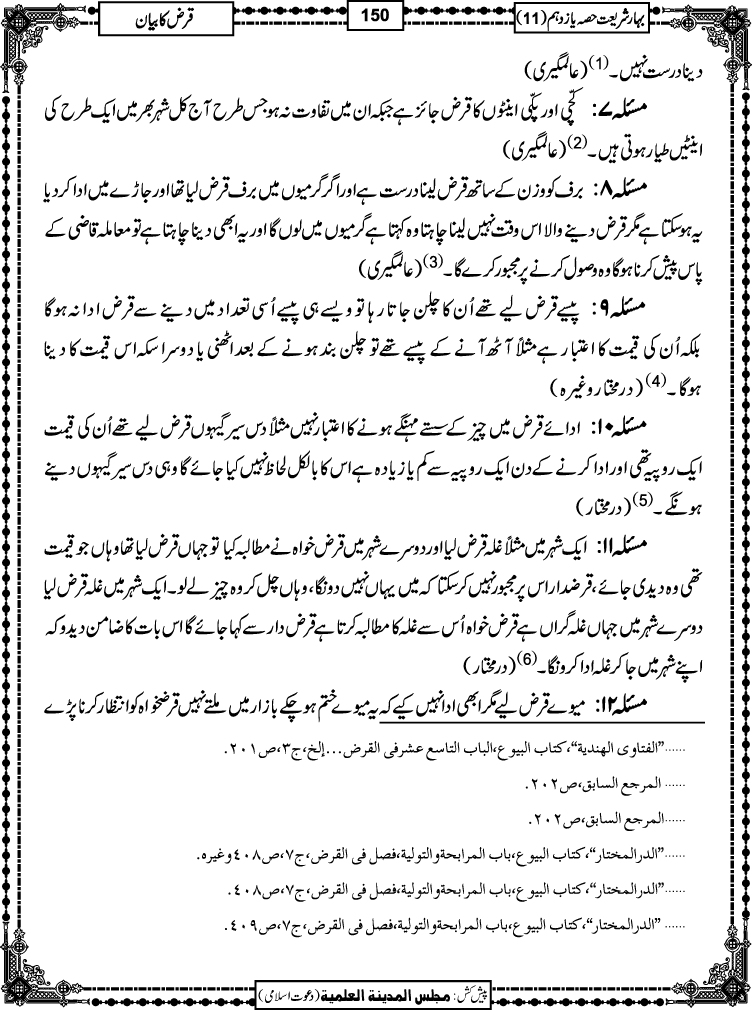 بہارشریعت حصہ یازدہم (11)
150
قرض کا بیان
دینا درست نہیں۔(1) (عالمگیری)
مسئلہ ۷: کچّی اور پکّی اینٹوں کا قرض جائز ہے جبکہ ان میں تفاوت نہ ہو جس طرح آج کل شہر بھر میں ایک طرح کی
اینٹیں طیار ہوتی ہیں۔(2) (عالمگیری)
مسئلہ ۸: برف کو وزن کے ساتھ قرض لینا درست ہے اور اگر گرمیوں میں برف قرض لیا تھا اور جاڑے میں ادا کر دیا
یہ ہوسکتا ہے مگر قرض دینے والا اس وقت نہیں لینا چاہتا وہ کہتا ہے گرمیوں میں لوں گا اور یہ ابھی دینا چاہتا ہے تو معاملہ قاضی کے
پاس پیش کرنا ہوگا وہ وصول کرنے پر مجبور کرے گا۔(3) (عالمگیری)
مسئلہ ۹: پیسے قرض لیے تھے اُن کا چلن جاتا رہا تو ویسے ہی پیسے اُسی تعداد میں دینے سے قرض ادا نہ ہوگا
بلکہ اُن کی قیمت کا اعتبار ہے مثلاً آٹھ آنے کے پیسے تھے تو چلن بند ہونے کے بعد اٹھنی یا دوسرا سکہ اس قیمت کا دینا
ہوگا۔(4) (درمختار وغیرہ)
مسئلہ ۱۰: ادائے قرض میں چیز کے سستے مہنگے ہونے کا اعتبار نہیں مثلاً دس سیر گیہوں قرض لیے تھے اُن کی قیمت
ایک روپیہ تھی اور ادا کرنے کے دن ایک روپیہ سے کم یا زیادہ ہے اس کا بالکل لحاظ نہیں کیا جائے گا وہی دس سیر گیہوں دینے
ہونگے۔(5) (درمختار)
مسئلہ ۱۱: ایک شہر میں مثلاً غلہ قرض لیا اور دوسرے شہر میں قرض خواہ نے مطالبہ کیا تو جہاں قرض لیا تھا وہاں جو قیمت
تھی وہ دیدی جائے، قرضدار اس پر مجبور نہیں کرسکتا کہ میں یہاں نہیں دونگا، وہاں چل کر وہ چیز لے لو۔ ایک شہر میں غلہ قرض لیا
دوسرے شہر میں جہاں غلہ گراں ہے قرض خواہ اُس سے غلہ کا مطالبہ کرتا ہے قرض دار سے کہا جائے گا اس بات کا ضامن دیدو کہ
اپنے شہر میں جا کر غلہ ادا کرونگا۔(6) (درمختار)
مسئلہ ۱۲: میوے قرض لیے مگر ابھی ادا نہیں کیے کہ یہ میوے ختم ہوچکے بازار میں ملتے نہیں قرضخواہ کو انتظار کرنا پڑے
......”الفتاوی الهندیة“،کتاب البیوع،الباب التاسع عشر فی القرض...إلخ،ج٣،ص٢٠١.
...... المرجع السابق،ص٢٠٢.
......المرجع السابق،ص٢٠٢.
......”الدرالمختار“،کتاب البیوع،باب المرابحة والتولیة،فصل فی القرض،ج٧،ص٤٠٨وغیره.
......”الدرالمختار“،کتاب البیوع،باب المرابحة والتولیة،فصل فی القرض،ج٧،ص٤٠٨.
...... ”الدرالمختار“،کتاب البیوع،باب المرابحة والتولیة،فصل فی القرض،ج٧،ص٤٠٩.
پیش کش: مجلس المدینة العلمیة (دعوت اسلامی)